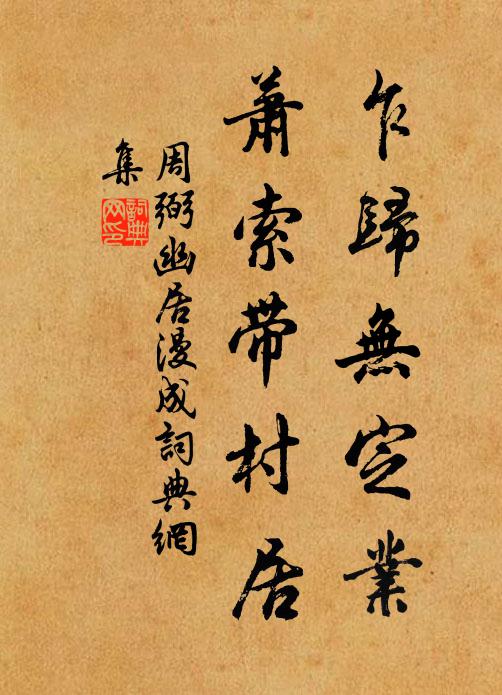 乍歸無定業
蕭索帶村居
周弼幽居漫成詞典網
集
詞典
网印